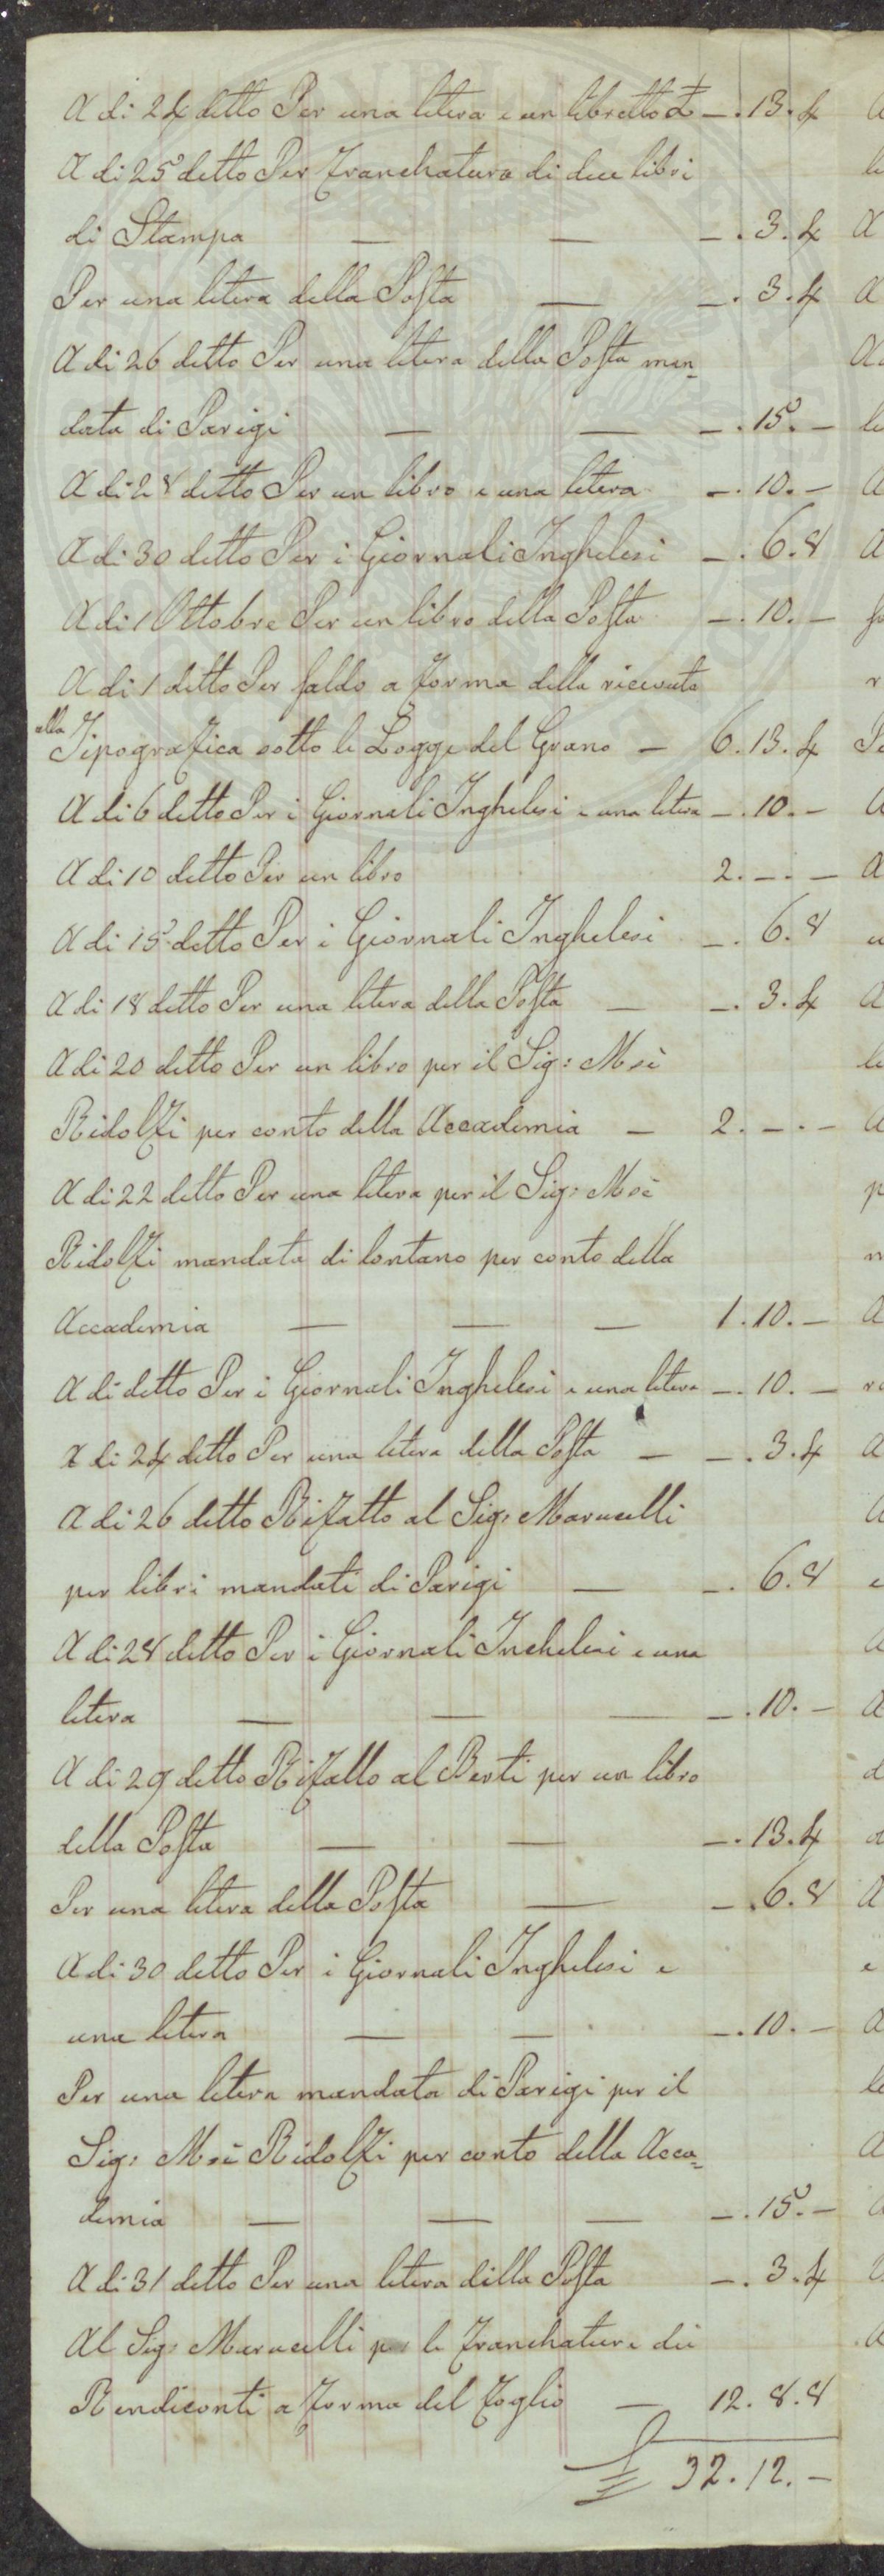 A di 24 detto Per una litera e un libretto £ —.13.4
A di 25 detto Per franchatura di due libri
di Stampa — — —.3.4
Per una litera della Posta — —.3.4
A di 26 detto Per una litera della Posta man=
data di Parigi — — —.15.—
A di 28 detto Per un libro e una litera —.10.—
A di 30 detto Per i Giornali Inghelesi —.6.8
A di 1 Ottobre Per un libro della Posta —.10.—
A di 1 detto Per saldo a forma della ricevuta
alla Tipografica sotto le Logge del Grano — 6.13.4
A di 6 detto Per i Giornali Inghelesi e una litera —.10.—
A di 10 detto Per un libro 2.—.—
A di 15 detto Per i Giornali Inghelesi —.6.8
A di 18 detto Per una litera della Posta — —.3.4
A di 20 detto Per un libro per il Sig: Msè
Ridolfi per conto della Accademia — 2.—.—
A di 22 detto Per una litera per il Sig: Msè
Ridolfi mandata di lontano per conto della
Accademia — — — 1.10.—
A di detto Per i Giornali Inghelesi e una litera —.10.—
A di 24 detto Per una litera della Posta — —.3.4
A di 26 detto Rifatto al Sig: Marucelli
per libri mandati di Parigi — —.6.8
A di 28 detto Per i Giornali Inchelesi e una
litera — — — —.10.—
A di 29 detto Rifatto al Berti per un libro
della Posta — — —.13.4
Per una litera della Posta — —.6.8
A di 30 detto Per i Giornali Inghelesi e
una litera — — —.10.—
Per una litera mandata di Parigi per il
Sig: Msè Ridolfi per conto della Acca=
demia — — — —.15.—
A di 31 detto Per una litera della Posta —.3.4
Al Sig: Marucelli per le franchature dei
Rendiconti a forma del foglio — 12.8.8
£ 32.12.—